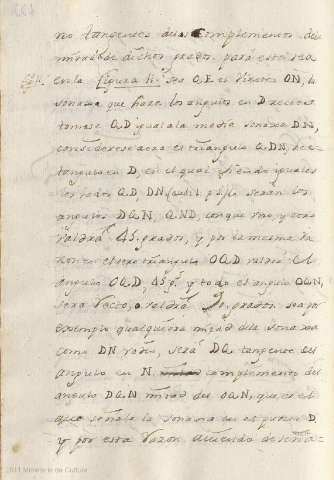 no tangentes de los complementos de la
mitad de dichos grados. para esto sea
en la figura 11. sea Q.E. el vierteo ON, la
sonaxa que hace los angulos en D rectos
tomase Q.D igual a la media sonaxa DN,
considerese aora el triangulo QDN, rec
tangulo en D, en el qual siendo iguales
los lados QD, DN seran los
angulos DQN, QND, con que uno, y otro
valdrá 45. grados, y por la misma ra
zon en el otro triangulo OQD valdrá el
angulo OQD, 45 g.s y todo el angulo OQN,
sera recto, o valdrá 90, grados. sea por
exemplo qualquiera mitad de la sonaxa
como DN radio, será DQ tangente del
angulo en N complemento del
angulo DQN mitad del OQN, que es el
que señala la sonaxa en el punto D
y por esta razon, acuerdo de
2011 Ministerio de Cultura